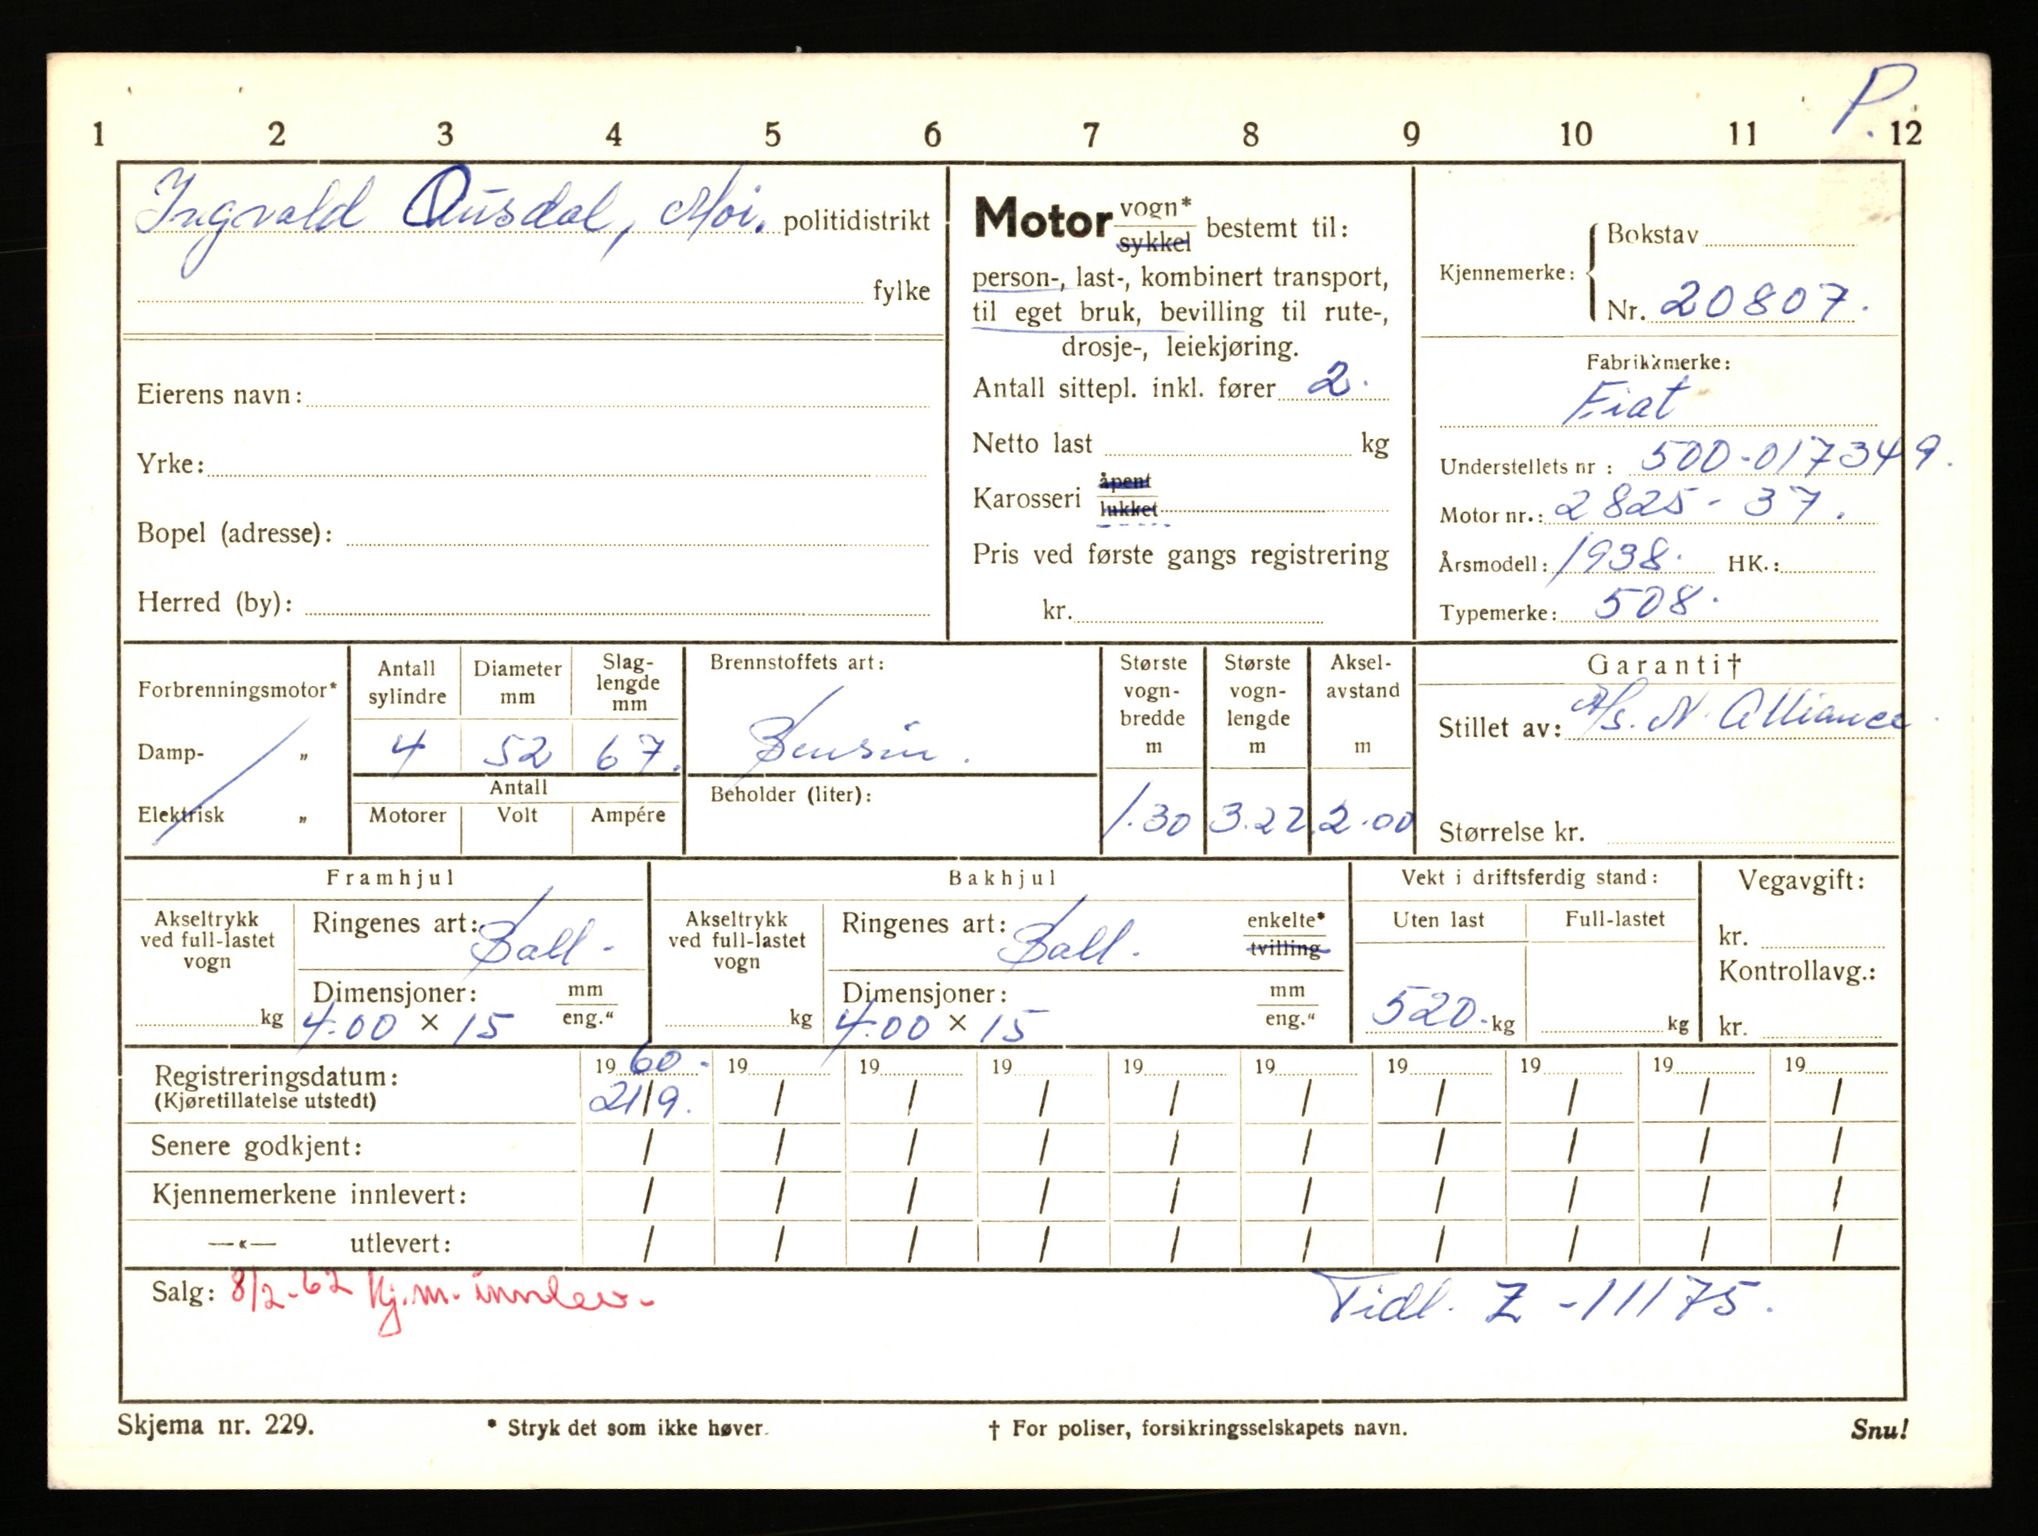 P.
1 2 3 4 5 6 7 8 9 10 11 12
Ingvald Ousdal, Moi. politidistrikt
fylke
Eierens navn:
Yrke:
Bopel (adresse):
Herred (by):
Motor vogn* sykkel bestemt til:
person-, last-, kombinert transport,
til eget bruk, bevilling til rute-,
drosje-, leiekjøring.
Antall sittepl. inkl. fører 2.
Netto last kg
Karosseri åpent lukket
Pris ved første gangs registrering
kr.
Kjennemerke: Bokstav
Nr. 20807.
Fabrikkmerke:
Fiat
Understellets nr : 500-017349.
Motor nr.: 2825-37.
Årsmodell: 1938. HK.:
Typemerke: 508.
Forbrenningsmotor*
Damp- „
Elektrisk „
Antall sylindre
Diameter mm
Slag-lengde mm
4 52 67.
Antall
Motorer Volt Ampére
Brennstoffets art:
Bensin.
Beholder (liter):
Største vogn-bredde m
Største vogn-lengde m
Aksel-avstand m
1.30 3.22 2.00
Garanti†
Stillet av: A/s. N. Alliance.
Størrelse kr.
Framhjul
Akseltrykk
ved full-lastet
vogn
kg
Ringenes art: Ball.
Dimensjoner: mm
4.00 × 15 eng."
Bakhjul
Akseltrykk
ved full-lastet
vogn
kg
Ringenes art: Ball. enkelte*
tvilling
Dimensjoner: mm
4.00 × 15 eng."
Vekt i driftsferdig stand:
Uten last Full-lastet
520. kg kg
Vegavgift:
kr.
Kontrollavg.:
kr.
Registreringsdatum: 1960. 19 19 19 19 19 19 19 19 19
(Kjøretillatelse utstedt) 21/9. / / / / / / / / /
Senere godkjent: / / / / / / / / / /
Kjennemerkene innlevert: / / / / / / / / / /
—«— utlevert: / / / / / / / / / /
Salg: 8/2-62 Kj.m. innlev. Tidl. Z-11175.
Skjema nr. 229. * Stryk det som ikke høver. † For poliser, forsikringsselskapets navn. Snu!